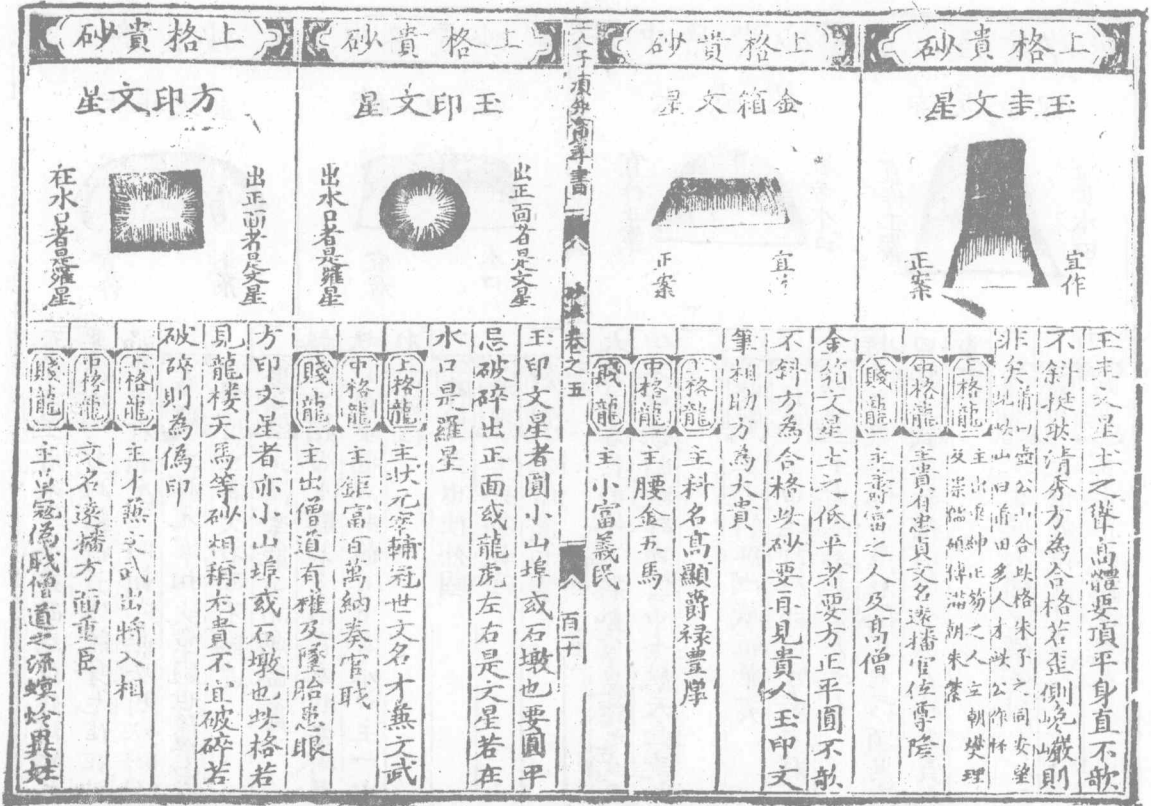 上格貴砂
玉圭文星
宜作
正案
玉圭文星土之聳高體要項平身直不欹
不斜挺然清秀方為合格若歪側巉巖則
非矣莆田壺公山合此格朱子之同安望
見此山曰莆田多人才此公作怀
上格龍
主出垂紳正笏之人立朝燮理
及崇儒碩傅滿朝朱紫
中格龍
主貴有忠貞文名遠播官位尊隆
賤龍
主壽富之人及高僧
上格貴砂
金箱文星
宜
正案
金箱文星土之低平者要方正平圓不欹
不斜方為合格此砂要再見貴人玉印文
筆相助方為大貴
上格龍
主科名髙顯爵祿豊厚
中格龍
主腰金五馬
賤龍
主小富義民
砂法卷之五
百十
上格貴砂
玉印文星
出正面者是文星
出水口者是羅星
玉印文星者圓小山埠或石墩也要圓平
忌破碎出正面或龍虎左右是文星若在
水口是羅星
上格龍
主狀元宰輔冠世文名才兼文武
中格龍
主鉅富百萬納奏官職
賤龍
主出僧道有權及墮胎患眼
上格貴砂
方印文星
出正面者是文星
在水口者是羅星
方印文星者亦小山埠或石墩也此格若
見龍樓天馬等砂相輔尤貴不宜破碎若
破碎則為偽印
上格龍
主才兼文武出將入相
中格龍
文名遠播方面重臣
賤龍
主單寇偽職僧道之流螟蛉異姓